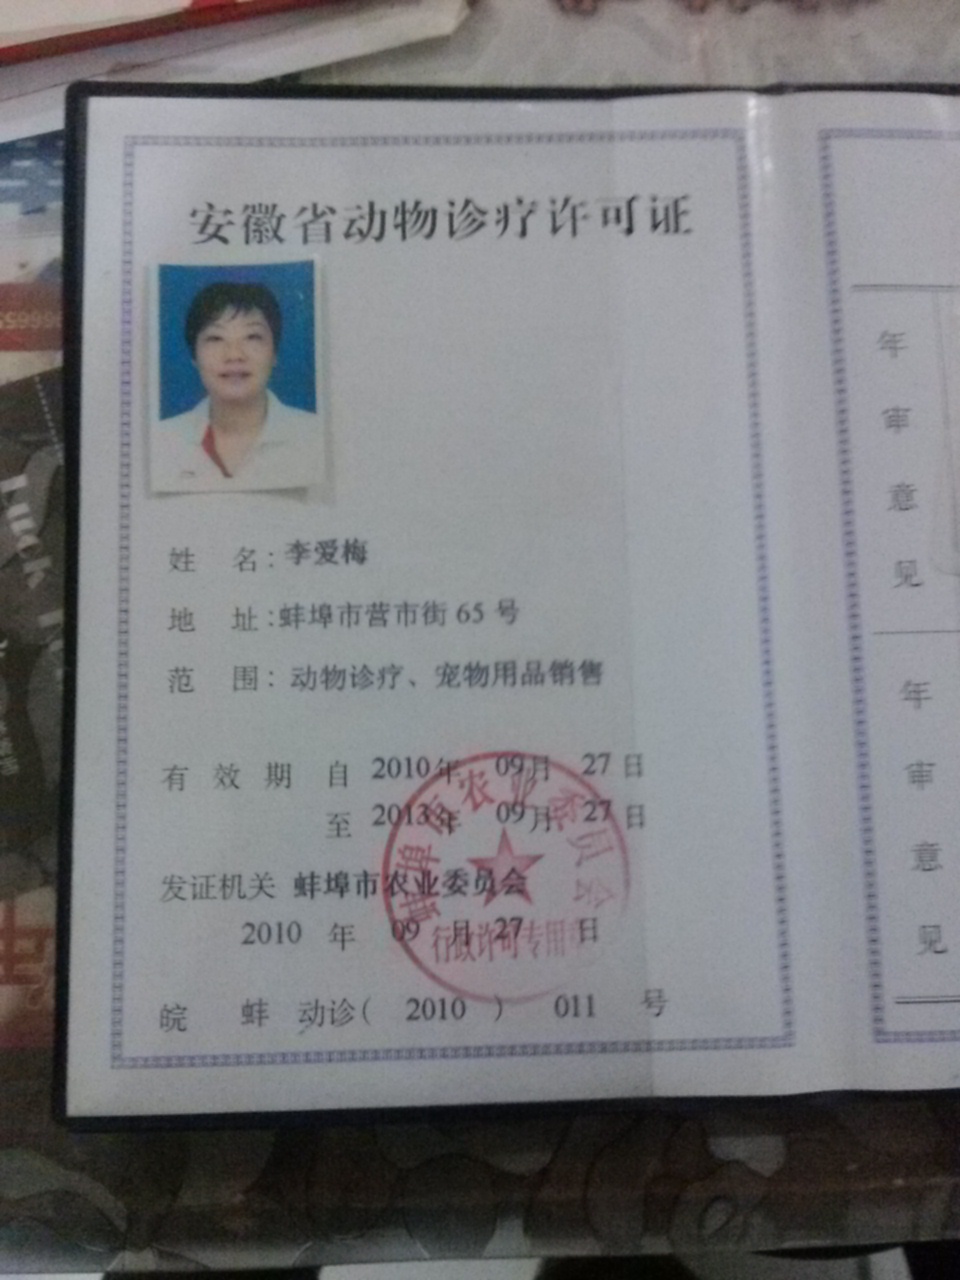 安徽省动物诊疗许可证
姓 名：李爱梅
地 址：蚌埠市营市街 65 号
范 围：动物诊疗、宠物用品销售
有 效 期 自 2010年 09月 27日
至 2013年 09月 27日
发证机关 蚌埠市农业委员会
2010 年 09 月 27 日
皖 蚌 动诊( 2010 ) 011 号
蚌埠市农业委员会
行政许可专用章
年审意见
年审意见
Luck